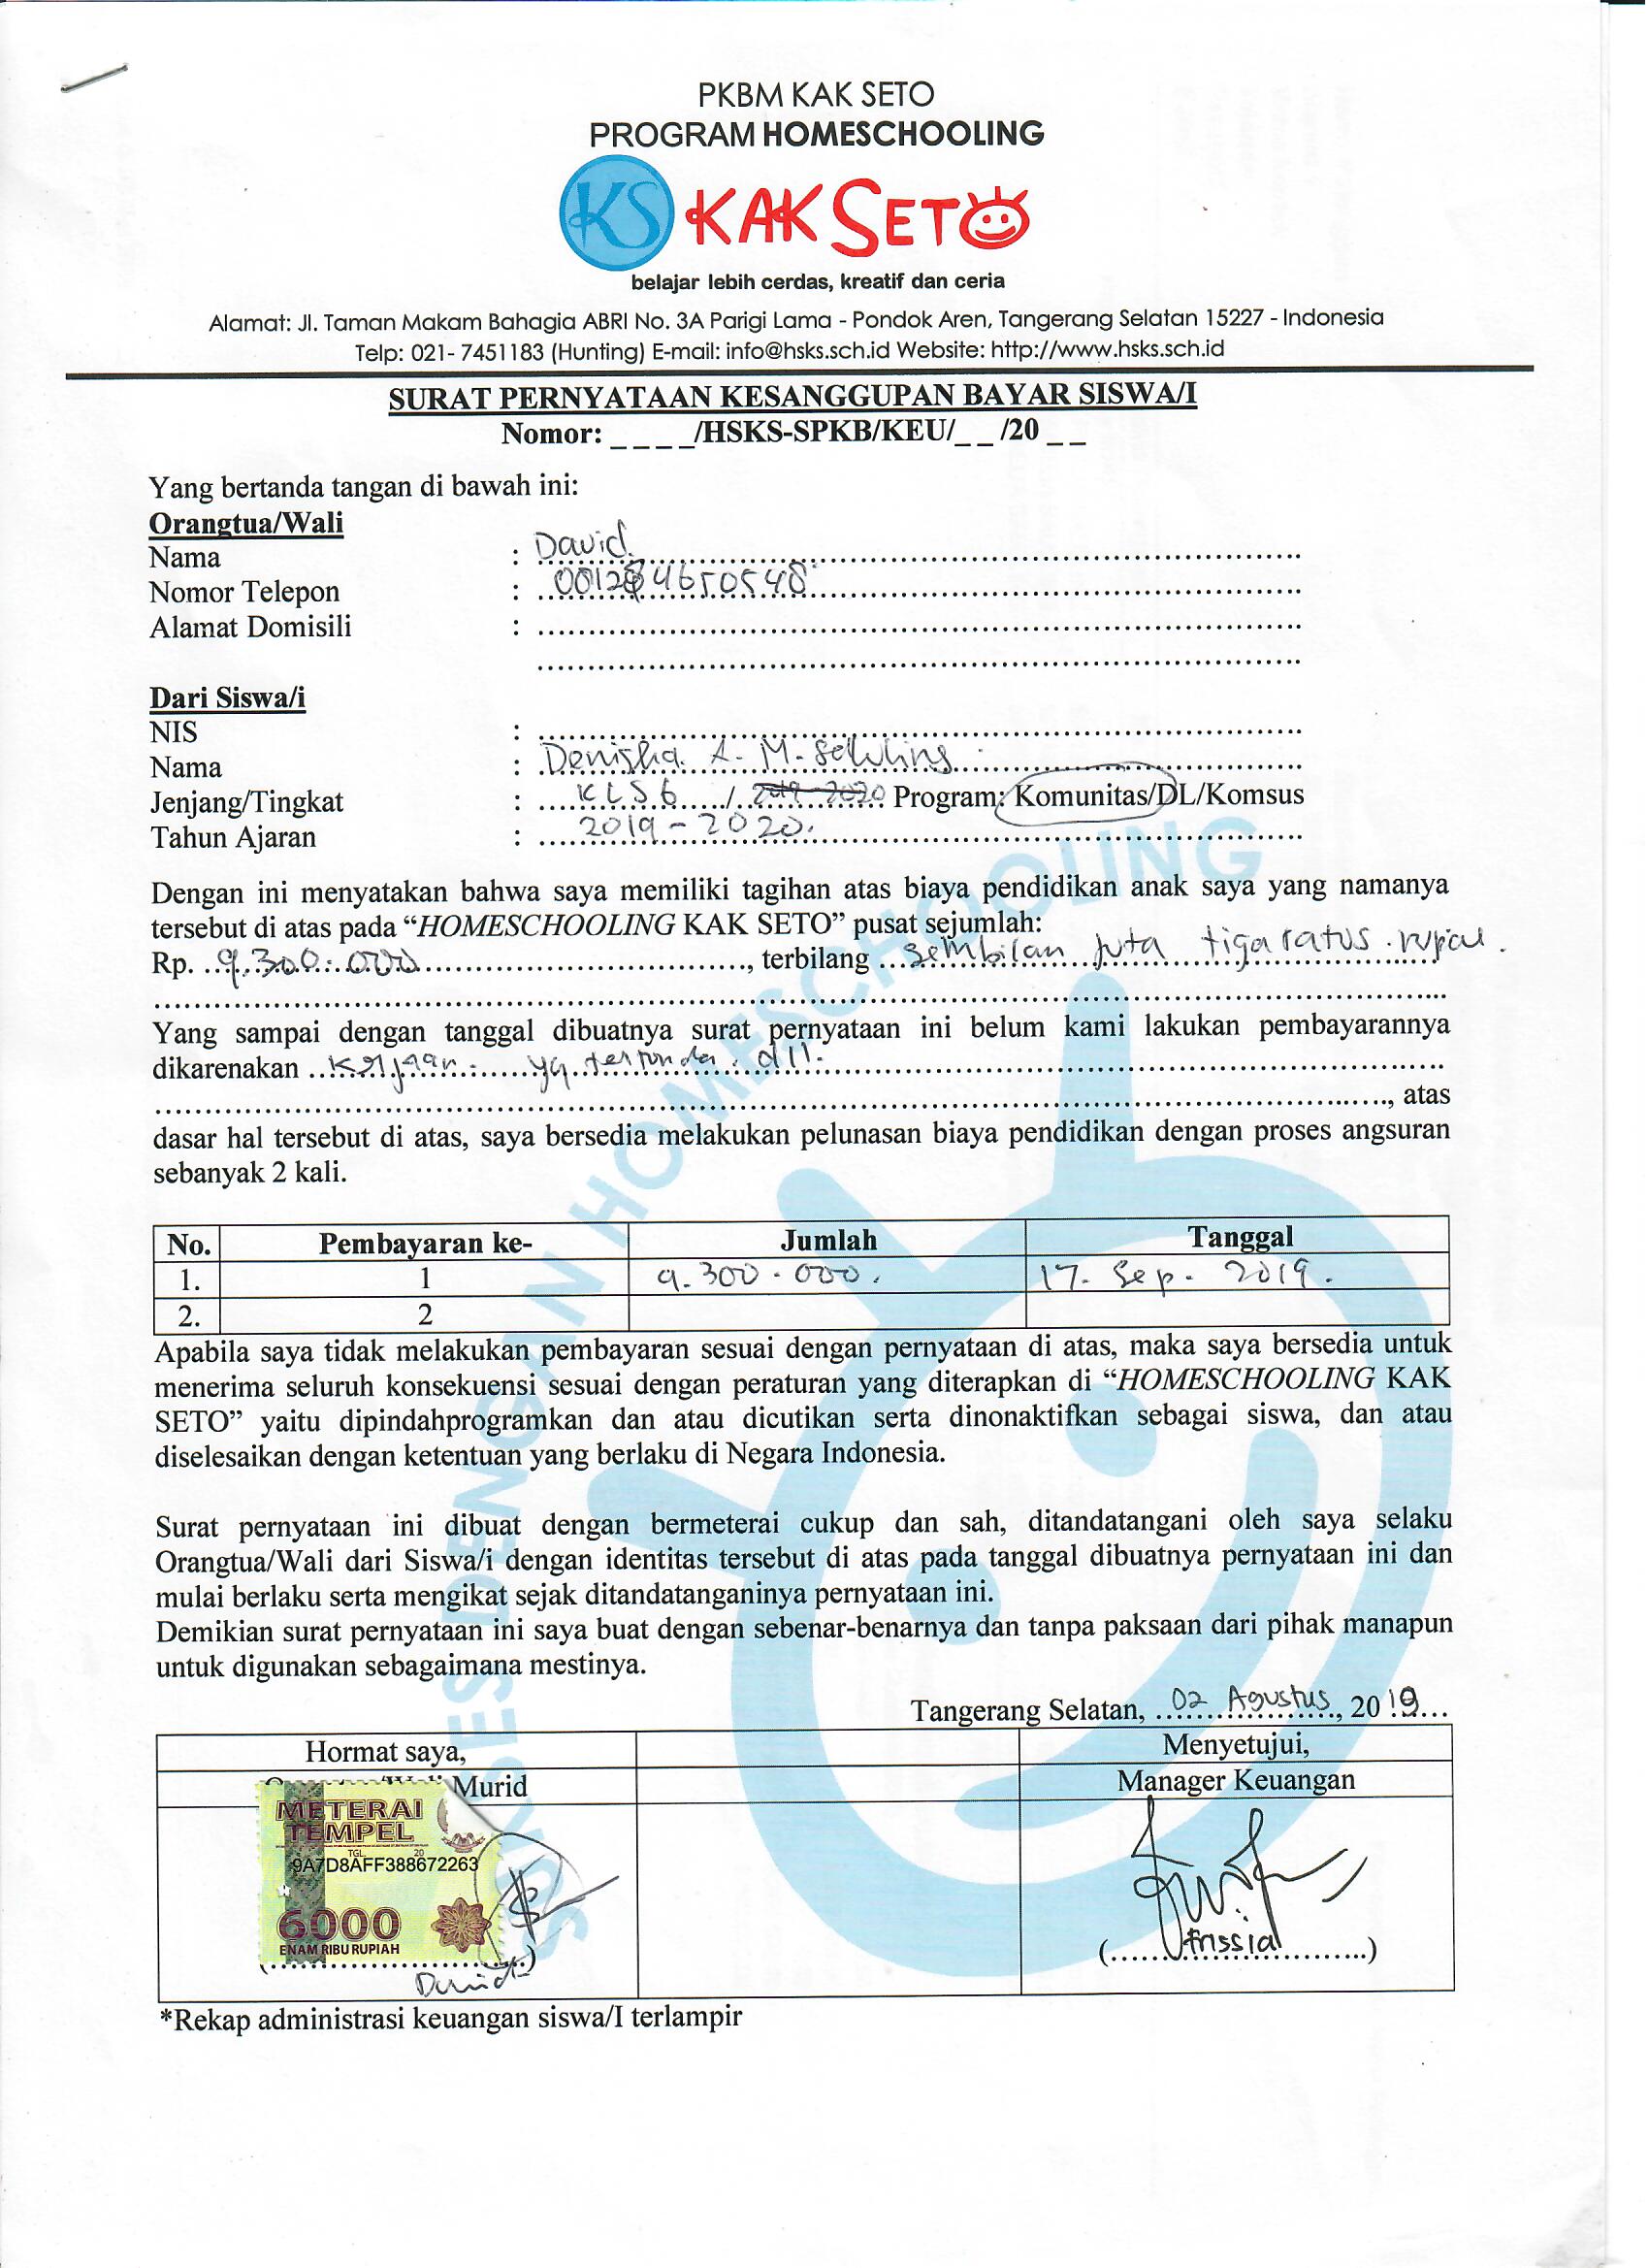 PKBM KAK SETO
PROGRAM HOMESCHOOLING
KS KAK SETO
belajar lebih cerdas, kreatif dan ceria
Alamat: Jl. Taman Makam Bahagia ABRI No. 3A Parigi Lama - Pondok Aren, Tangerang Selatan 15227 - Indonesia
Telp: 021- 7451183 (Hunting) E-mail: info@hsks.sch.id Website: http://www.hsks.sch.id
SURAT PERNYATAAN KESANGGUPAN BAYAR SISWA/I
Nomor: _ _ _ _/HSKS-SPKB/KEU/_ _ /20 _ _
Yang bertanda tangan di bawah ini:
Orangtua/Wali
Nama : David.
Nomor Telepon :
Alamat Domisili :
Dari Siswa/i
NIS :
Nama : Denisha. A. M.
Jenjang/Tingkat : KLS 6 / 2019-2020 Program: Komunitas/DL/Komsus
Tahun Ajaran : 2019 - 2020.
Dengan ini menyatakan bahwa saya memiliki tagihan atas biaya pendidikan anak saya yang namanya
tersebut di atas pada “HOMESCHOOLING KAK SETO” pusat sejumlah:
Rp. 9.300.000, terbilang sembilan juta tiga ratus rupiah.
Yang sampai dengan tanggal dibuatnya surat pernyataan ini belum kami lakukan pembayarannya
dikarenakan kerjaan yg tertunda. dll.
, atas
dasar hal tersebut di atas, saya bersedia melakukan pelunasan biaya pendidikan dengan proses angsuran
sebanyak 2 kali.
No. Pembayaran ke- Jumlah Tanggal
1. 1 9.300.000. 17. Sep. 2019.
2. 2
Apabila saya tidak melakukan pembayaran sesuai dengan pernyataan di atas, maka saya bersedia untuk
menerima seluruh konsekuensi sesuai dengan peraturan yang diterapkan di “HOMESCHOOLING KAK
SETO” yaitu dipindahprogramkan dan atau dicutikan serta dinonaktifkan sebagai siswa, dan atau
diselesaikan dengan ketentuan yang berlaku di Negara Indonesia.
Surat pernyataan ini dibuat dengan bermeterai cukup dan sah, ditandatangani oleh saya selaku
Orangtua/Wali dari Siswa/i dengan identitas tersebut di atas pada tanggal dibuatnya pernyataan ini dan
mulai berlaku serta mengikat sejak ditandatanganinya pernyataan ini.
Demikian surat pernyataan ini saya buat dengan sebenar-benarnya dan tanpa paksaan dari pihak manapun
untuk digunakan sebagaimana mestinya.
Tangerang Selatan, 02 Agustus, 2019
Hormat saya, Menyetujui,
Murid Manager Keuangan
METERAI
TEMPEL
TGL. 20
9A7D8AFF388672263
6000
ENAM RIBU RUPIAH
David
(frissia)
*Rekap administrasi keuangan siswa/I terlampir
SUKSES DENGAN HOMESCHOOLING